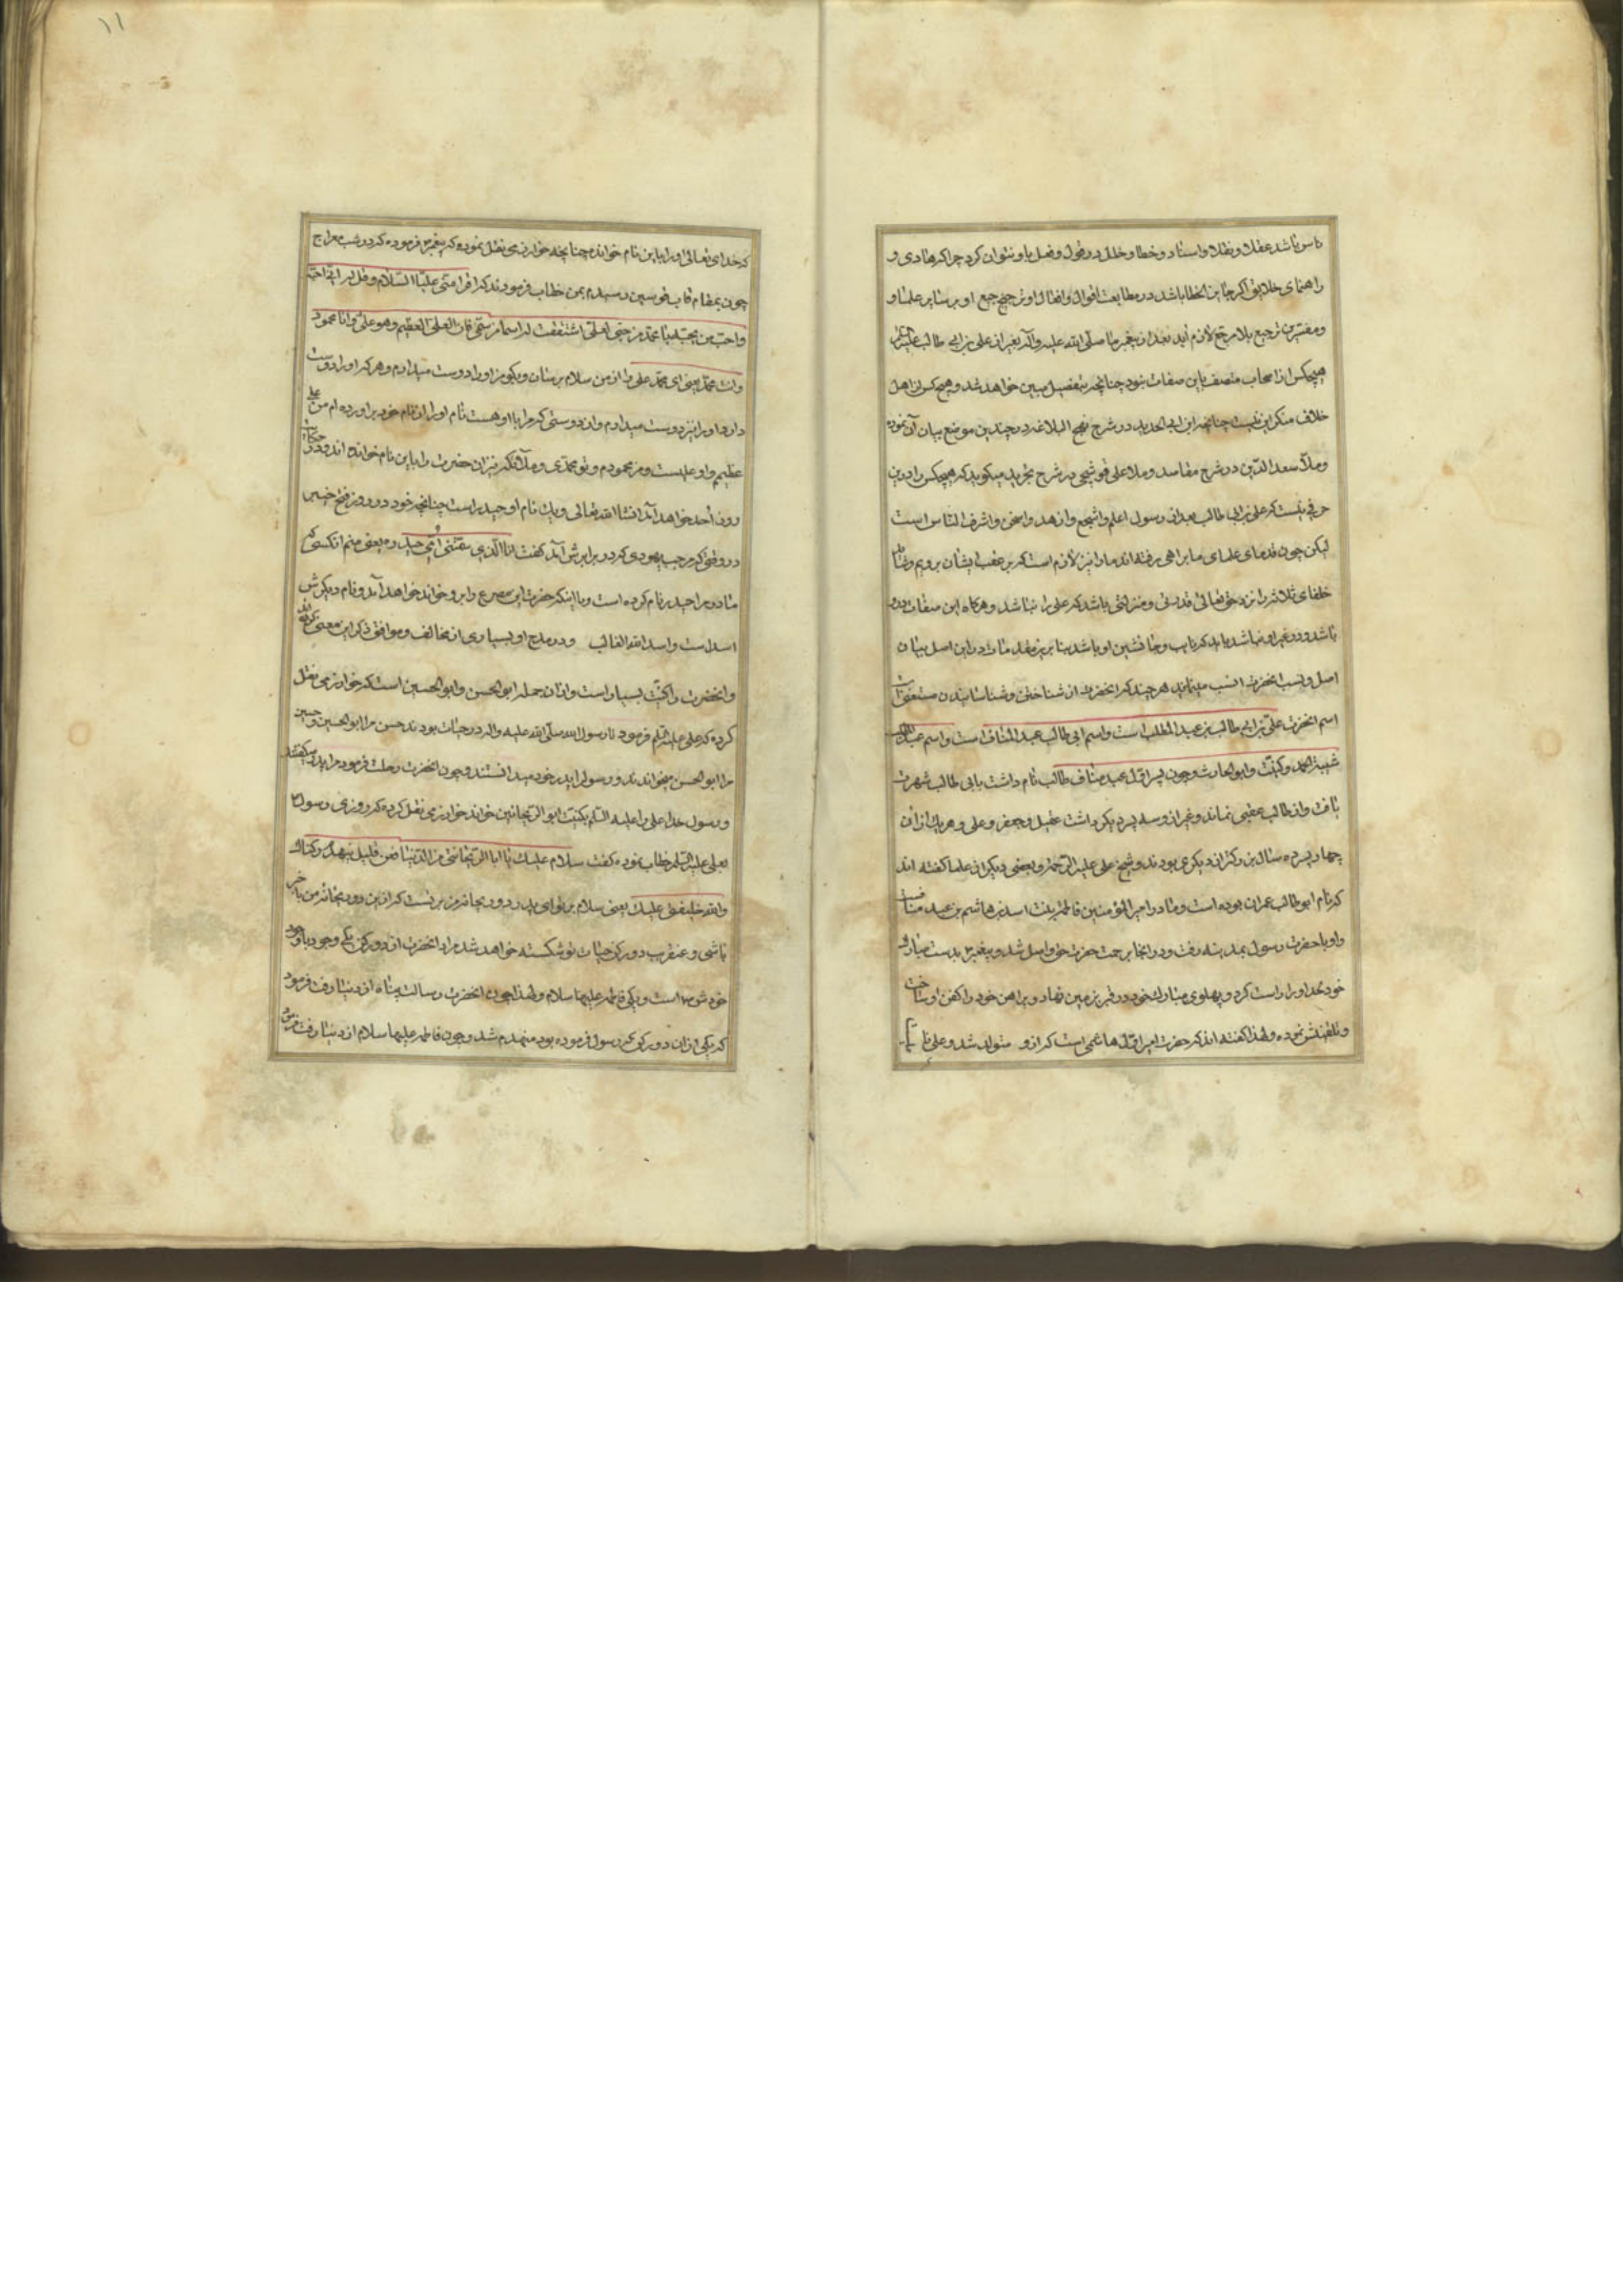 ناس باشد عقلا و نقلا و اسناد و خطا و خلل در قول و فعل باو نتوان کرد چرا که هادی و
راهنمای خلایق اگر جایز الخطا باشد در مطابعت اقوال و افعال او ترجیح او بر سایر علما و
و مفسرین ترجیح بلا مرجح لازم آید بعد از پیغمبر ما صلی الله علیه و آله بغیر از علی بن ابی طالب علیه
هیچکس از اصحاب متصف باین صفات نبود چنانچه بتفصیل مبین خواهد شد و هیچ کس از اهل
خلاف منکر این نیست چنانچه ابن ابی الحدید در شرح نهج البلاغه در چندین موضع بیان آن نموده
و ملا سعد الدین در شرح مقاصد و ملا علی قوشجی در شرح تجرید میگوید که هیچکس را درین
حرفی نیست که علی بن ابی طالب بعد از رسول اعلم و اشجع و ازهد و اسخی و اشرف الناس است
لیکن چون قدمای علمای ما براهی رفته اند ما را نیز لازم است که بر عقب ایشان برویم و
خلفای ثلاثه را نزد حق تعالی قدری و منزلتی باشد که علی را نباشد و هرکاه این صفات درو
باشد و در غیر او نباشد باید که نایب و جانشین او باشد بنا برین مقدمات در این اصل بیان
اصل و نسب انحضرت انسب مینماید هر چند که انحضرت از شناختن و شناسانیدن مستغنی است
اسم انحضرت علی بن ابی طالب بن عبد المطلب است و اسم ابی طالب عبد المناف است و اسم عبد المطلب
شیبة الحمد و کنیت و ابو الحارث و چون پسر اول عبد مناف طالب نام داشت بابی طالب شهرت
یافت و از طالب عقبی نماند و غیر از و سه پسر دیکر داشت عقیل و جعفر و علی و هر یک از ان
چهار پسر ده سال بزرکتر از دیکری بودند و شیخ علی علیه الرحمة و بعضی دیکر از علما کفته اند
که نام ابو طالب عمران بوده است و مادر امیر المؤمنین فاطمه بنت اسد بن هاشم بن عبد مناف است
و او با حضرت رسول بمدینه رفت و در انجا برحمت حضرت حق واصل شد و پیغمبر بدست مبارک
خود لحد او را راست کرد و پهلوی مبارک خود در قبر بر زمین نهاد و پیراهن خود را کفن او ساخت
و تلقینش نموده و لهذا کفته اند که حضرت امیر اول هاشمی است که از و متولد شد و علی
که خدای تعالی او را باین نام خوانده چنانچه خوارزمی نقل نموده که پیغمبر فرموده که در شب معراج
چون بمقام قاب قوسین رسیدم بمن خطاب فرمودند که اقرا منی علیا السلام و قل له انی احبه
و احب من یحبه یا محمد من حبی لعلی اشتققت له اسما من اسمی فان العلی العظیم و هو علی و انا محمود
و انت محمد یعنی ای محمد علی را از من سلام برسان و بکو من او را دوست میدارم و هر که او را دوست
دارد او را نیز دوست میدارم و از دوستی که مرا با او هست نام او را از نام خود براورده ام من علی
عظیم و او علیست و من محمودم و تو محمدی و ملائکه نیز ان حضرت را باین نام خوانده اند و در
روز احد خواهد آمد انشا الله تعالی و یک نام او حیدر است چنانچه خود در روز فتح خیبر
در وقتی که مرحب یهودی که در برابرش آمد کفت انا الذی سمتنی امی حیدره یعنی منم انکسی که
مادر مرا حیدر نام کرده است و با اینکه حضرت این مصرع را برو خواند خواهد آمد و نام دیکرش
اسد است و اسد الله الغالب و در مدح او بسیاری از مخالف و موافق ذکر این معنی کرده اند
و انحضرت را کنیت بسیار است و از ان جمله ابو الحسن و ابو الحسین است که خوارزمی نقل
کرده که علی علیه السلم فرمود تا رسول الله صلی الله علیه و اله در حیات بودند حسن مرا ابو الحسین و حسین
مرا ابو الحسن میخواندند و رسول را پدر خود میدانستند و چون انحضرت رحلت فرمود مرا پدر میکفتند
و رسول خدا علی را علیه السلم بکنیت ابو الریحانتین خواند خوارزمی نقل کرده که روزی رسول
بعلی علیه السلم خطاب نموده کفت سلام علیک یا ابا الریحانتی من الدنیا فعن قلیل ینهد رکناک
و الله خلیفتی علیک یعنی سلام بر تو ای پدر دو ریحانه من بر تست که ازین دو ریحانه من با خبر
باشی و عنقریب دو رکن حیات تو شکسته خواهد شد مراد انحضرت از دو رکن یکی وجود با وجود
خودش است و یکی فاطمه علیها سلام و لهذا چون انحضرت رسالت پناه از دنیا رفت فرمود
که یکی از ان دو رکن که رسول فرموده بود منهدم شد و چون فاطمه علیها سلام از دنیا رفت